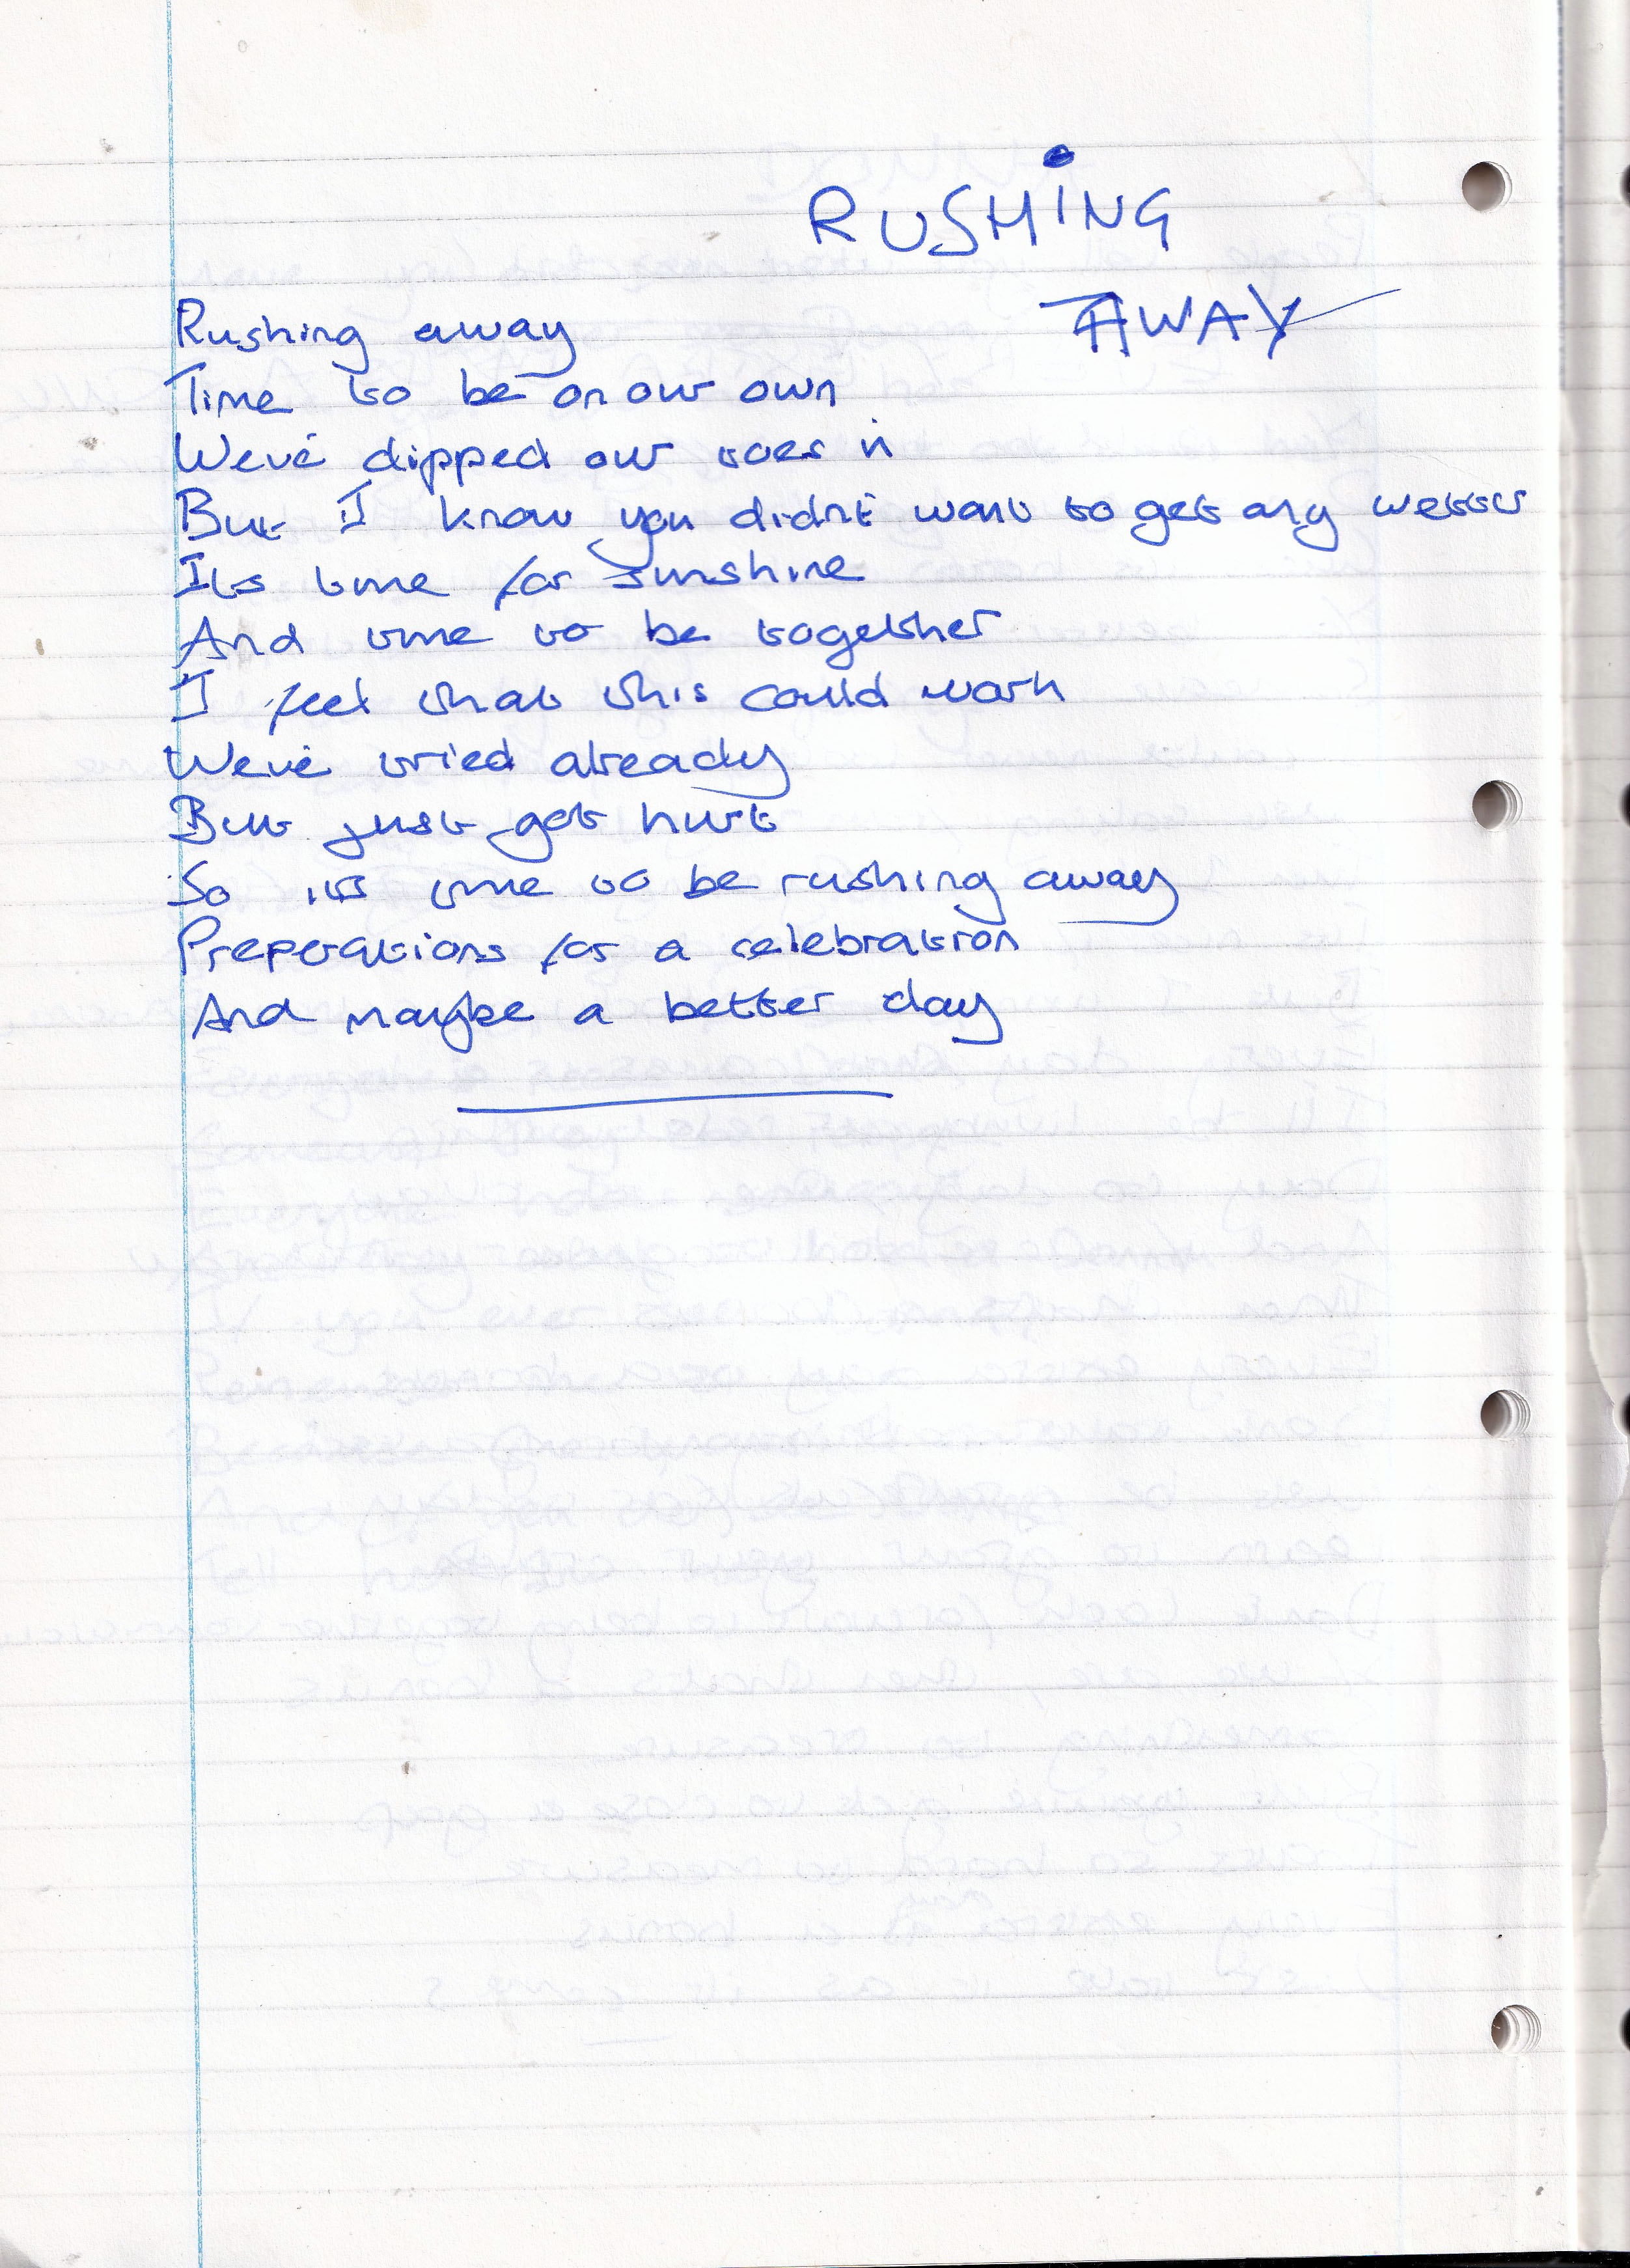 RUSHING
AWAY
Rushing away
Time to be on our own
We've dipped our toes in
But I know you didn't want to get any wetter
Its time for sunshine
And time to be together
I feel that this could work
We've tried already
But just got hurt
So its time to be rushing away
Preperations for a celebration
And maybe a better day